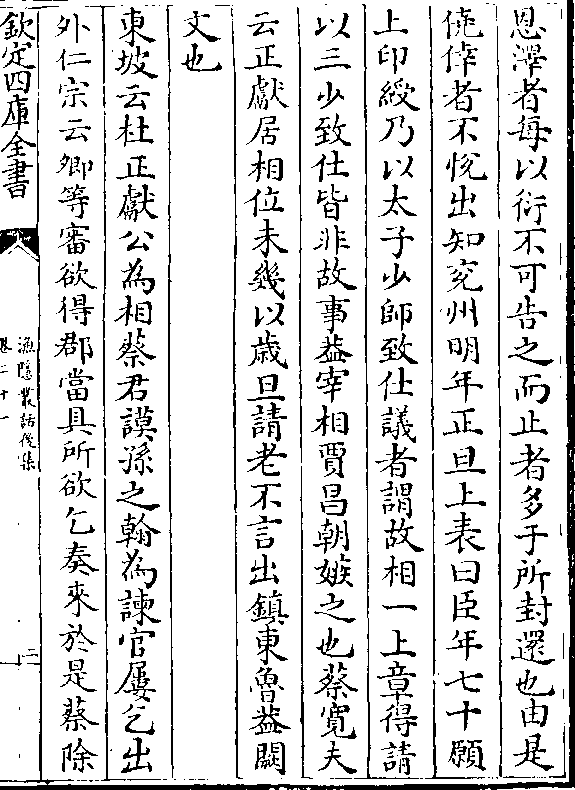 恩澤者每以衍不可告之而止者多于所封還也由是
僥倖者不悅出知兖州明年正旦上表曰臣年七十願
上印綬乃以太子少師致仕議者謂故相一上章得請
以三少致仕皆非故事葢宰相賈昌朝嫉之也蔡寛夫
云正獻居相位未幾以歲旦請老不言出鎮東魯葢闕
文也
東坡云杜正獻公為相蔡君謨孫之翰為諫官屢乞出
外仁宗云卿等審欲得郡當具所欲乞奏來於是蔡除
欽定四庫全書
漁隱叢話後集
卷二十一
二